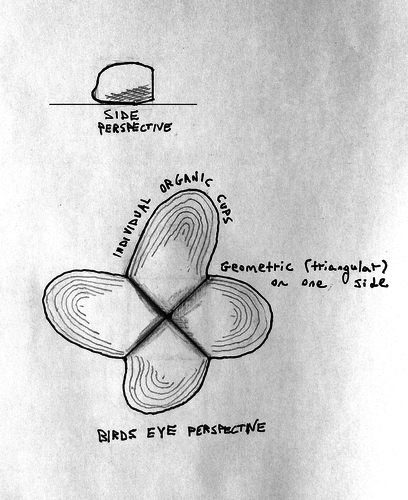 SIDE
PERSPECTIVE
INDIVIDUAL ORGANIC CUPS
Geometric (triangular)
on one side
BIRDS EYE PERSPECTIVE